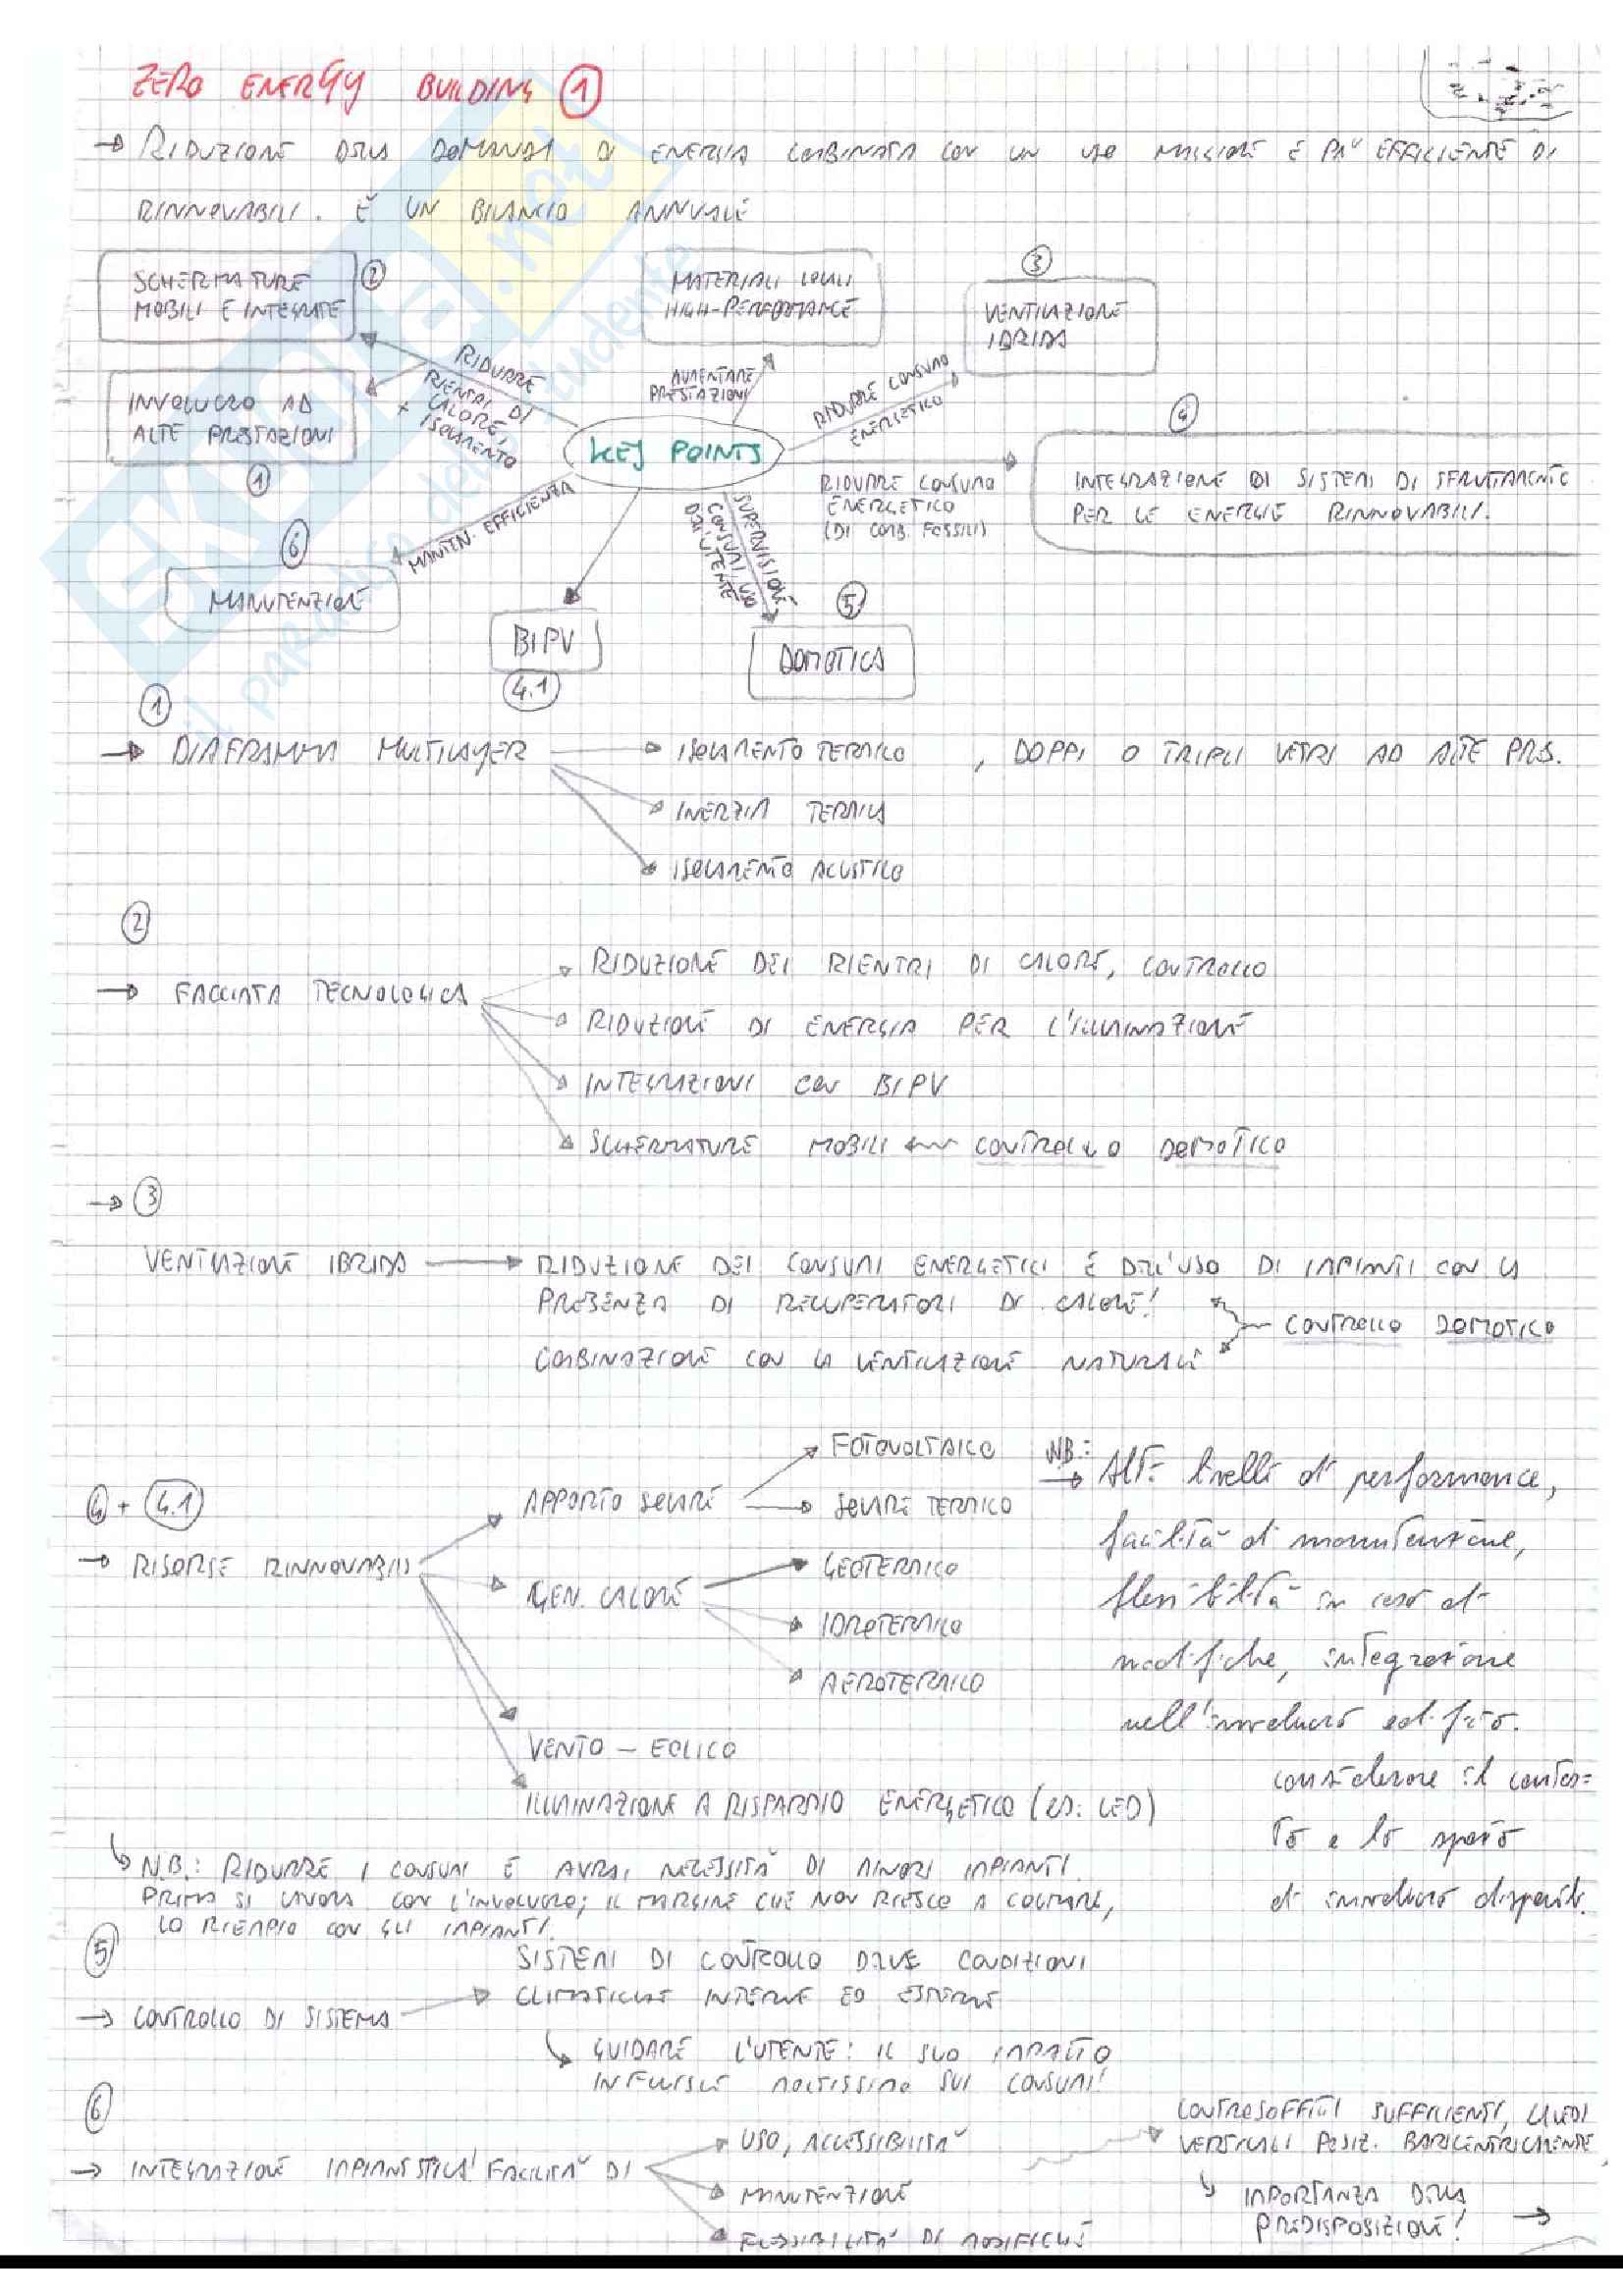 ZERO ENERGY BUILDING 1
→ RIDUZIONE DELLA DOMANDA DI ENERGIA COMBINATA CON UN USO MAGGIORE E PIÙ EFFICIENTE DI
RINNOVABILI. È UN BILANCIO ANNUALE
SCHERMATURE
MOBILI E INTEGRATE
2
MATERIALI LOCALI
HIGH-PERFORMANCE
3
VENTILAZIONE
IBRIDA
INVOLUCRO AD
ALTE PRESTAZIONI
1
RIDURRE
RIENTRI DI
CALORE,
+ ISOLAMENTO
AUMENTARE
PRESTAZIONI
RIDURRE CONSUMO
ENERGETICO
KEY POINTS
4
INTEGRAZIONE DI SISTEMI DI SFRUTTAMENTO
PER LE ENERGIE RINNOVABILI.
RIDURRE CONSUMO
ENERGETICO
(DI COMB. FOSSILI)
MANTEN. EFFICIENZA
6
MANUTENZIONE
BIPV
4.1
SUPERVISIONE
CONSUMI, USO
DELL'UTENTE
5
DOMOTICA
1
→ DIAFRAMMA MULTILAYER → ISOLAMENTO TERMICO , DOPPI O TRIPLI VETRI AD ALTE PRES.
INERZIA TERMICA
ISOLAMENTO ACUSTICO
2
→ FACCIATA TECNOLOGICA
RIDUZIONE DEI RIENTRI DI CALORE, CONTROLLO
RIDUZIONE DI ENERGIA PER L'ILLUMINAZIONE
INTEGRAZIONI CON BIPV
SCHERMATURE MOBILI ← CONTROLLO DOMOTICO
→ 3
VENTILAZIONE IBRIDA → RIDUZIONE DEI CONSUMI ENERGETICI E DELL'USO DI IMPIANTI CON LA
PRESENZA DI RECUPERATORI DI CALORE!
CONTROLLO DOMOTICO
COMBINAZIONE CON LA VENTILAZIONE NATURALE
4 + 4.1
→ RISORSE RINNOVABILI
APPORTO SOLARE
FOTOVOLTAICO
SOLARE TERMICO
GEN. CALORE
GEOTERMICO
IDROTERMICO
AEROTERMICO
VENTO – EOLICO
ILLUMINAZIONE A RISPARMIO ENERGETICO (ES: LED)
NB.:
→ Alti livelli di performance,
facilità di manutenzione,
flessibilità in caso di
modifiche, integrazione
nell'involucro edificio.
considerare il contes=
to e lo spazio
di involucro disponib.
N.B.: RIDURRE I CONSUMI E AVRAI NECESSITÀ DI MINORI IMPIANTI.
PRIMA SI LAVORA CON L'INVOLUCRO; IL MARGINE CHE NON RIESCO A COLMARE,
LO RIEMPIO CON GLI IMPIANTI.
5
→ CONTROLLO DI SISTEMA
SISTEMI DI CONTROLLO DELLE CONDIZIONI
CLIMATICHE INTERNE ED ESTERNE
GUIDARE L'UTENTE: IL SUO IMPATTO
INFLUISCE MOLTISSIMO SUI CONSUMI!
6
→ INTEGRAZIONE IMPIANTISTICA! FACILITÀ DI
USO, ACCESSIBILITÀ
MANUTENZIONE
FLESSIBILITÀ DI MODIFICHE
CONTROSOFFITTI SUFFICIENTI, CAVEDI
VERTICALI POSIZ. BARICENTRICAMENTE
IMPORTANZA DELLA
PREDISPOSIZIONE! →
SKUOLA.net
il paradiso dello studente